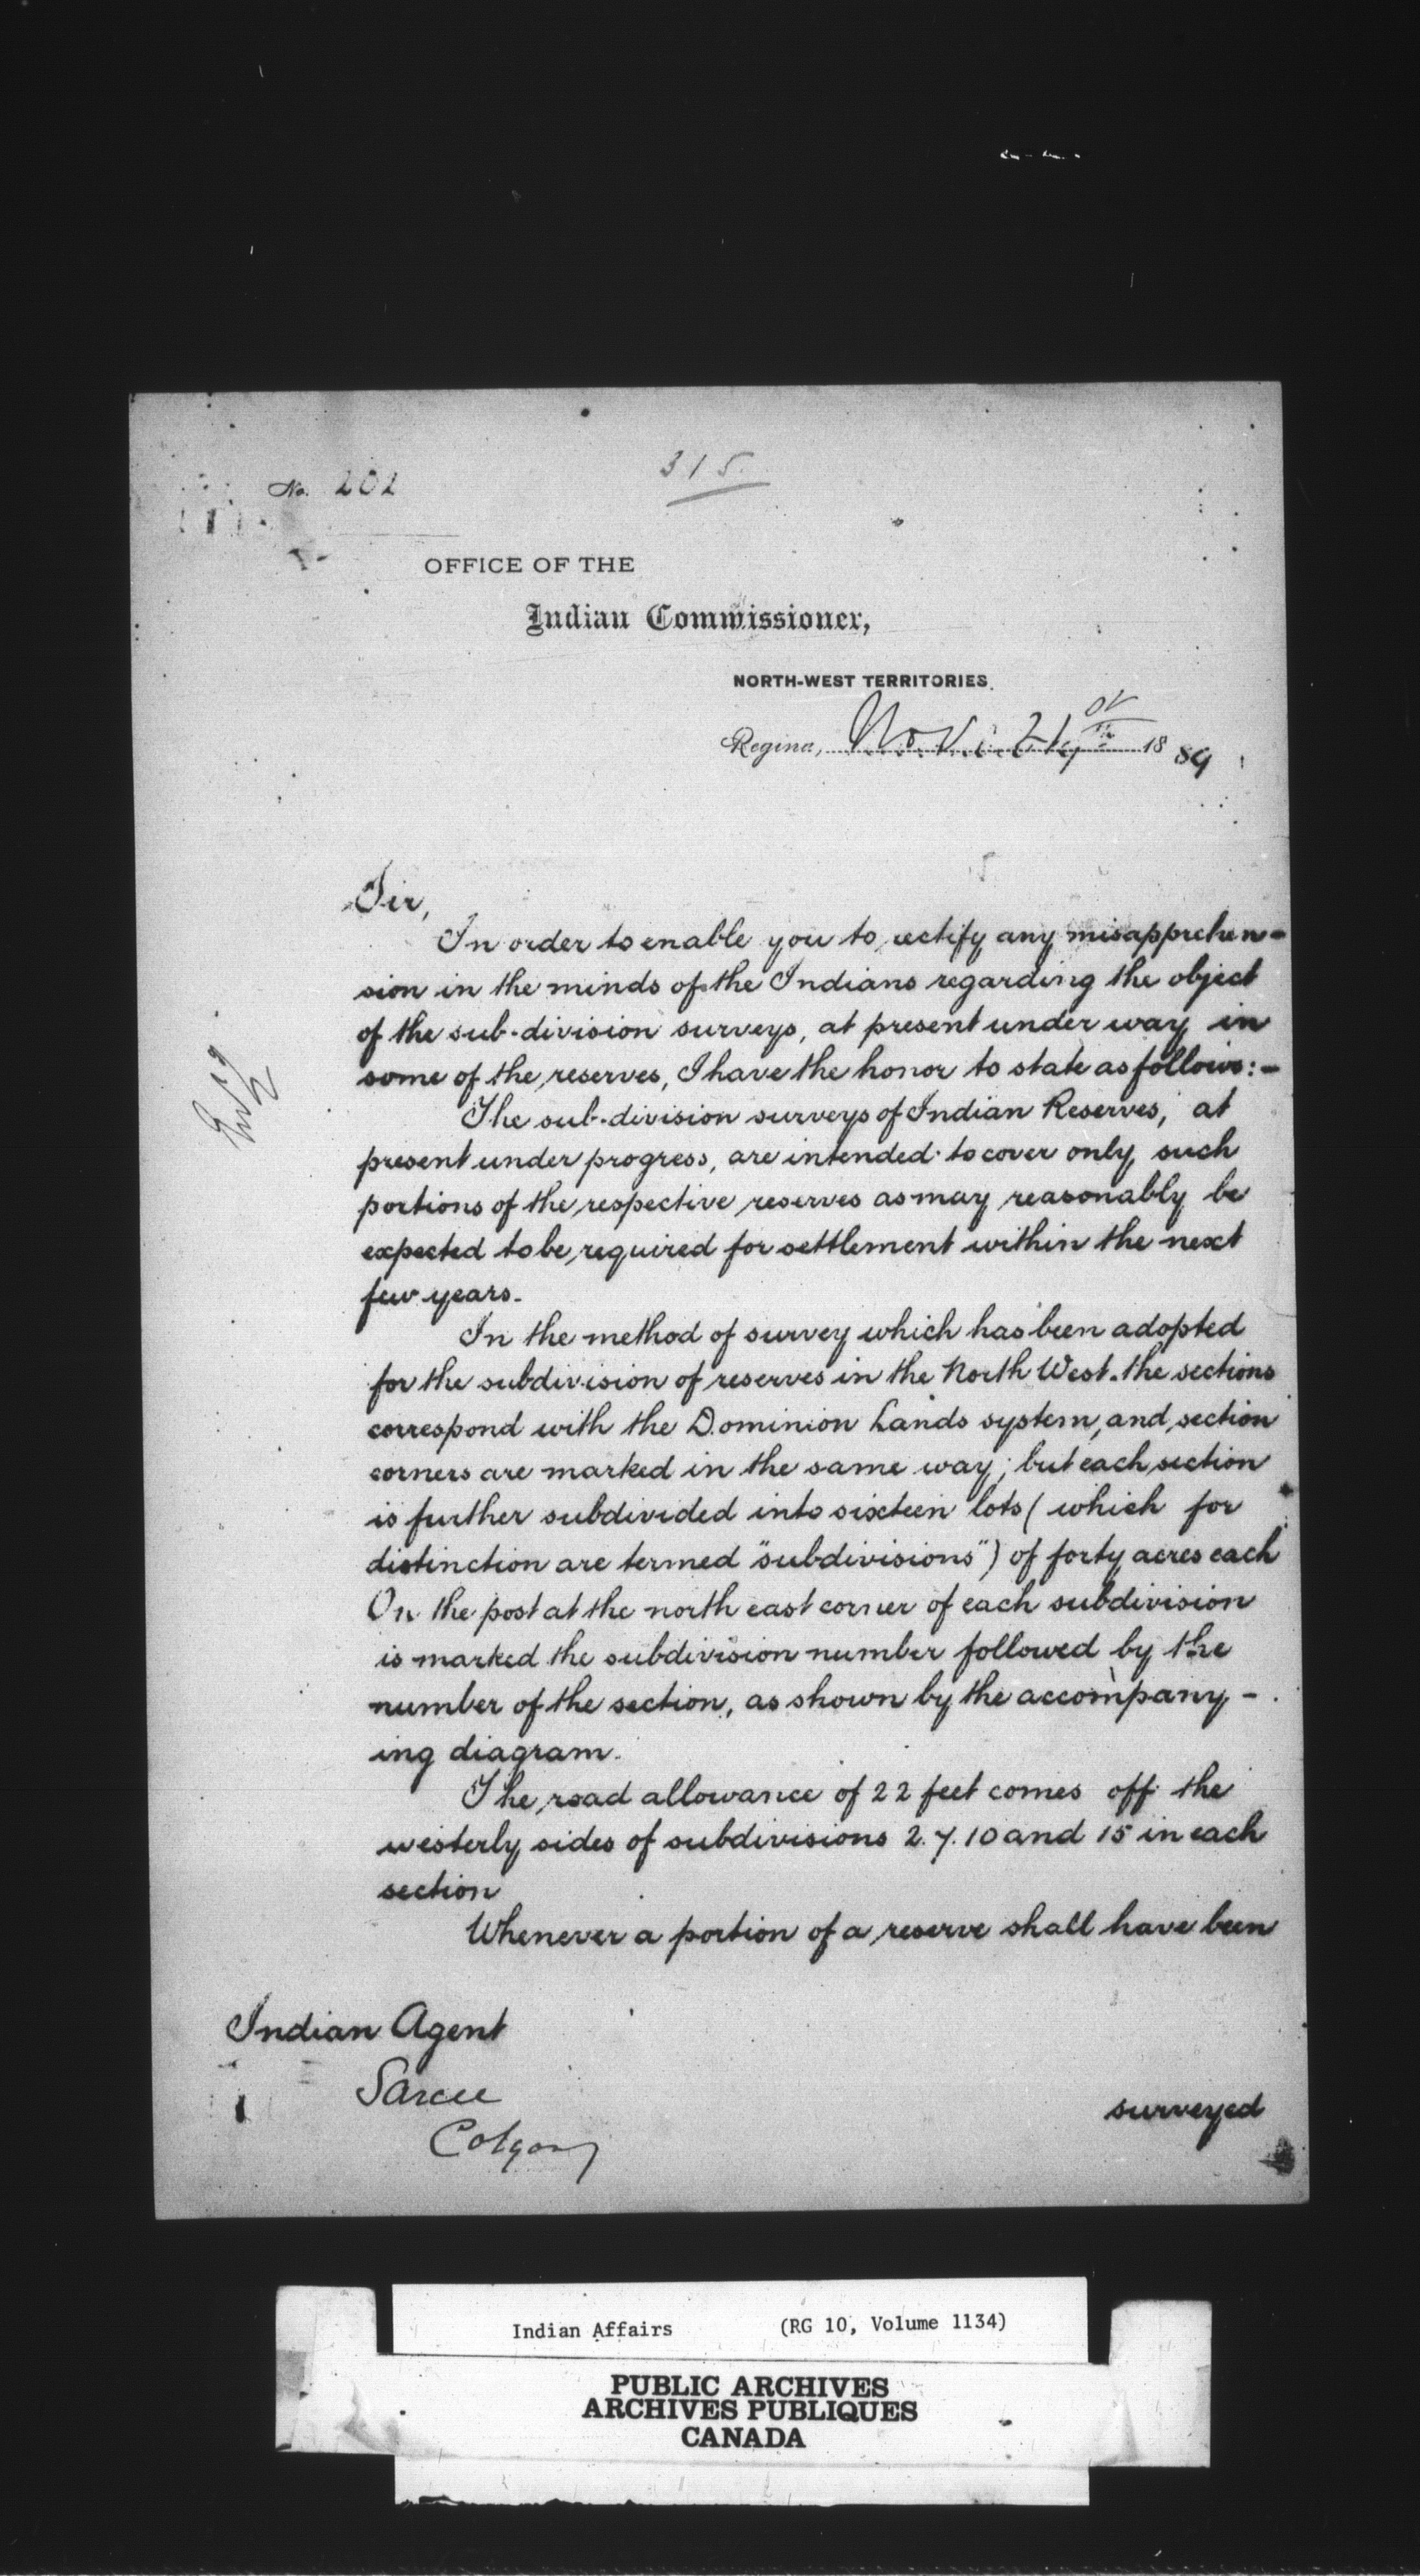 315
No. 202
OFFICE OF THE
Indian Commissioner,
NORTH-WEST TERRITORIES.
Regina, Nov. 18 89
Sir,
In order to enable you to rectify any misapprehen-
sion in the minds of the Indians regarding the object
of the sub-division surveys, at present under way in
some of the reserves, I have the honor to state as follows:-
The sub-division surveys of Indian Reserves, at
present under progress, are intended to cover only such
portions of the respective reserves as may reasonably be
expected to be required for settlement within the next
few years.
In the method of survey which has been adopted
for the subdivision of reserves in the North West. the sections
correspond with the Dominion Lands system, and section
corners are marked in the same way; but each section
is further subdivided into sixteen lots (which for
distinction are termed "subdivisions") of forty acres each
On the post at the north east corner of each subdivision
is marked the subdivision number followed by the
number of the section, as shown by the accompany-
ing diagram.
The road allowance of 22 feet comes off the
westerly sides of subdivisions 2. 7. 10 and 15 in each
section
Whenever a portion of a reserve shall have been
Indian Agent
Sarcee
Calgary
surveyed
Indian Affairs (RG 10, Volume 1134)
PUBLIC ARCHIVES
ARCHIVES PUBLIQUES
CANADA